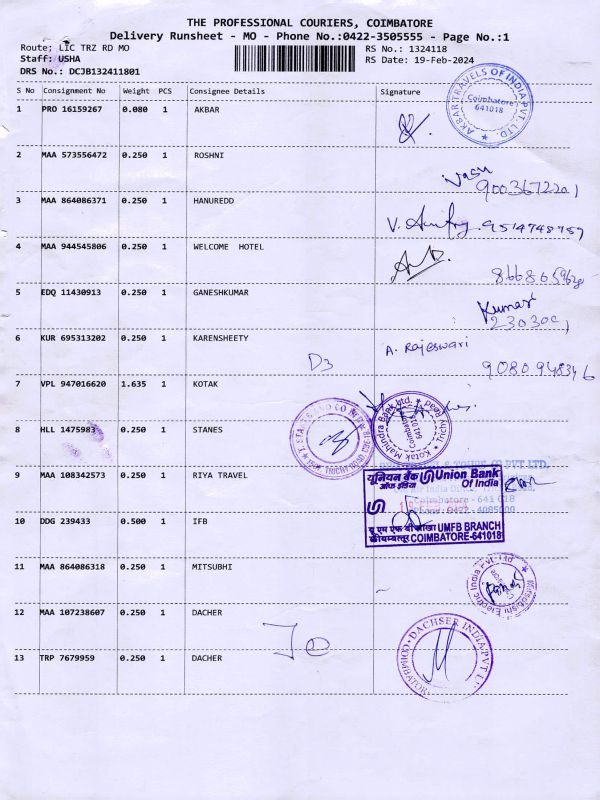 THE PROFESSIONAL COURIERS, COIMBATORE
Delivery Runsheet - MO - Phone No.:0422-3505555 - Page No.:1
Route; LIC TRZ RD MO
RS No.: 1324118
Staff: USHA
RS Date: 19-Feb-2024
DRS No.: DCJB132411801
S No Consignment No Weight PCS Consignee Details Signature
AKBAR TRAVELS OF INDIA PVT. LTD.
Coimbatore
641018
1 PRO 16159267 0.080 1 AKBAR
2 MAA 573556472 0.250 1 ROSHNI
Vasu
9003672201
3 MAA 864086371 0.250 1 HANUREDD
9514748759
4 MAA 944545806 0.250 1 WELCOME HOTEL
5 EDQ 11430913 0.250 1 GANESHKUMAR
Kumar
6 KUR 695313202 0.250 1 KARENSHEETY
D3
A. Rajeswari
9080948346
7 VPL 947016620 1.635 1 KOTAK
Kotak Mahindra Bank Ltd.
Trichy Road
Coimbatore
641 018
8 HLL 1475983 0.250 1 STANES
TRICHY ROAD
9 MAA 108342573 0.250 1 RIYA TRAVEL
यूनियन बैंक Union Bank
ऑफ इंडिया Of India
Coimbatore - 641 018
Phone : 0422 - 4085000
10 DDG 239433 0.500 1 IFB
यू एम एफ बी शाखा UMFB BRANCH
कोयम्बत्तूर COIMBATORE-641018
11 MAA 864086318 0.250 1 MITSUBHI
Mitsubishi Electric India Pvt. Ltd
12 MAA 107238607 0.250 1 DACHER
DACHSER INDIA PVT L
COIMBATOR
13 TRP 7679959 0.250 1 DACHER